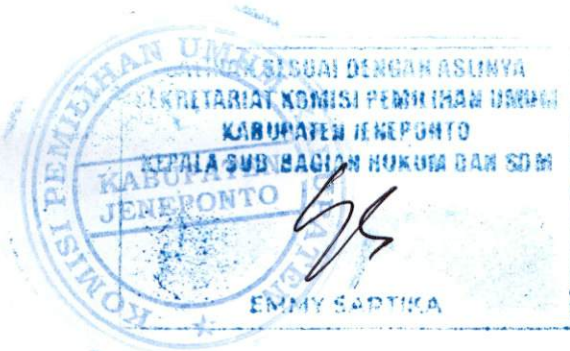 SESUAI DENGAN ASLINYA
SEKRETARIAT KOMISI PEMILIHAN UMUM
KABUPATEN JENEPONTO
KEPALA SUB BAGIAN HUKUM DAN SDM
EMMY SARTIKA
KOMISI PEMILIHAN UMUM
KABUPATEN
JENEPONTO